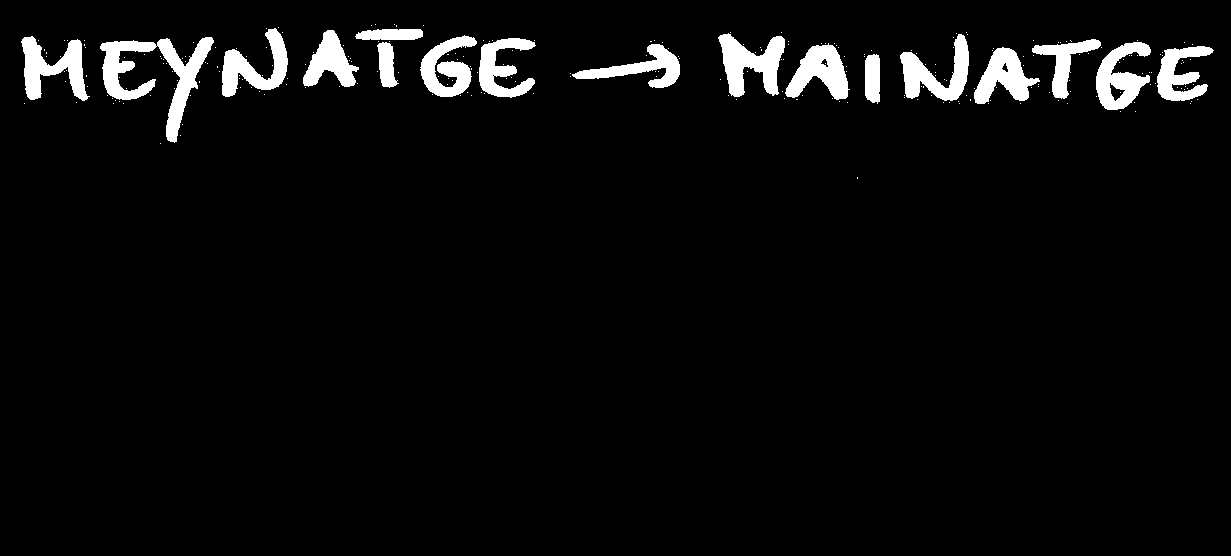 MEYNATGE → MAINATGE